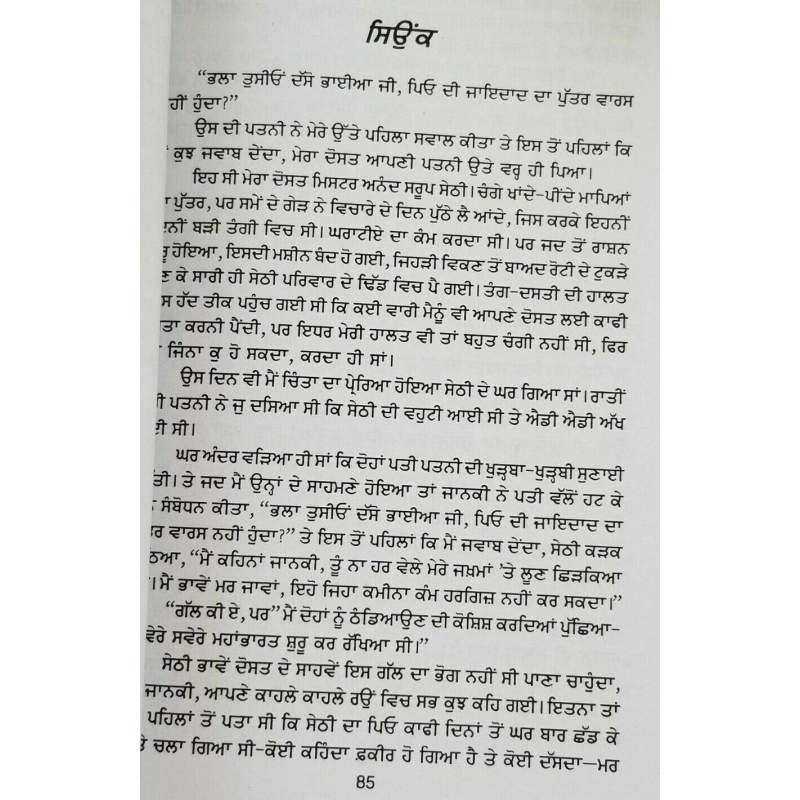 ਸਿਉਂਕ
“ਭਲਾ ਤੁਸੀਓਂ ਦੱਸੋ ਭਾਈਆ ਜੀ, ਪਿਓ ਦੀ ਜਾਇਦਾਦ ਦਾ ਪੁੱਤਰ ਵਾਰਸ
ਹੀਂ ਹੁੰਦਾ?”
ਉਸ ਦੀ ਪਤਨੀ ਨੇ ਮੇਰੇ ਉੱਤੇ ਪਹਿਲਾ ਸਵਾਲ ਕੀਤਾ ਤੇ ਇਸ ਤੋਂ ਪਹਿਲਾਂ ਕਿ
ਕੁਝ ਜਵਾਬ ਦੇਂਦਾ, ਮੇਰਾ ਦੋਸਤ ਆਪਣੀ ਪਤਨੀ ਉਤੇ ਵਰ੍ਹ ਹੀ ਪਿਆ।
ਇਹ ਸੀ ਮੇਰਾ ਦੋਸਤ ਮਿਸਟਰ ਅਨੰਦ ਸਰੂਪ ਸੇਠੀ। ਚੰਗੇ ਖਾਂਦੇ-ਪੀਂਦੇ ਮਾਪਿਆਂ
ਪੁੱਤਰ, ਪਰ ਸਮੇਂ ਦੇ ਗੇੜ ਨੇ ਵਿਚਾਰੇ ਦੇ ਦਿਨ ਪੁੱਠੇ ਲੈ ਆਂਦੇ, ਜਿਸ ਕਰਕੇ ਇਹਨੀਂ
ਬੜੀ ਤੰਗੀ ਵਿਚ ਸੀ। ਘਰਾਟੀਏ ਦਾ ਕੰਮ ਕਰਦਾ ਸੀ। ਪਰ ਜਦ ਤੋਂ ਰਾਸ਼ਨ
ਹੋਇਆ, ਇਸਦੀ ਮਸ਼ੀਨ ਬੰਦ ਹੋ ਗਈ, ਜਿਹੜੀ ਵਿਕਣ ਤੋਂ ਬਾਅਦ ਰੋਟੀ ਦੇ ਟੁਕੜੇ
ਣ ਕੇ ਸਾਰੀ ਹੀ ਸੇਠੀ ਪਰਿਵਾਰ ਦੇ ਢਿੱਡ ਵਿਚ ਪੈ ਗਈ। ਤੰਗ-ਦਸਤੀ ਦੀ ਹਾਲਤ
ਸ ਹੱਦ ਤੀਕ ਪਹੁੰਚ ਗਈ ਸੀ ਕਿ ਕਈ ਵਾਰੀ ਮੈਨੂੰ ਵੀ ਆਪਣੇ ਦੋਸਤ ਲਈ ਕਾਫੀ
ਤਾ ਕਰਨੀ ਪੈਂਦੀ, ਪਰ ਇਧਰ ਮੇਰੀ ਹਾਲਤ ਵੀ ਤਾਂ ਬਹੁਤ ਚੰਗੀ ਨਹੀਂ ਸੀ, ਫਿਰ
ਜਿੰਨਾ ਕੁ ਹੋ ਸਕਦਾ, ਕਰਦਾ ਹੀ ਸਾਂ।
ਉਸ ਦਿਨ ਵੀ ਮੈਂ ਚਿੰਤਾ ਦਾ ਪ੍ਰੇਰਿਆ ਹੋਇਆ ਸੇਠੀ ਦੇ ਘਰ ਗਿਆ ਸਾਂ। ਰਾਤੀਂ
ਪਤਨੀ ਨੇ ਜੁ ਦਸਿਆ ਸੀ ਕਿ ਸੇਠੀ ਦੀ ਵਹੁਟੀ ਆਈ ਸੀ ਤੇ ਐਡੀ ਐਡੀ ਅੱਖ
ਸੀ।
ਘਰ ਅੰਦਰ ਵੜਿਆ ਹੀ ਸਾਂ ਕਿ ਦੋਹਾਂ ਪਤੀ ਪਤਨੀ ਦੀ ਖੁੜ੍ਹਬਾ-ਖੁੜ੍ਹਬੀ ਸੁਣਾਈ
ਤੀ। ਤੇ ਜਦ ਮੈਂ ਉਨ੍ਹਾਂ ਦੇ ਸਾਹਮਣੇ ਹੋਇਆ ਤਾਂ ਜਾਨਕੀ ਨੇ ਪਤੀ ਵੱਲੋਂ ਹਟ ਕੇ
ਸੰਬੋਧਨ ਕੀਤਾ, “ਭਲਾ ਤੁਸੀਓਂ ਦੱਸੋ ਭਾਈਆ ਜੀ, ਪਿਓ ਦੀ ਜਾਇਦਾਦ ਦਾ
ਤਰ ਵਾਰਸ ਨਹੀਂ ਹੁੰਦਾ?” ਤੇ ਇਸ ਤੋਂ ਪਹਿਲਾਂ ਕਿ ਮੈਂ ਜਵਾਬ ਦੇਂਦਾ, ਸੇਠੀ ਕੜਕ
ਠਿਆ, “ਮੈਂ ਕਹਿਨਾਂ ਜਾਨਕੀ, ਤੂੰ ਨਾ ਹਰ ਵੇਲੇ ਮੇਰੇ ਜ਼ਖ਼ਮਾਂ ’ਤੇ ਲੂਣ ਛਿੜਕਿਆ
। ਮੈਂ ਭਾਵੇਂ ਮਰ ਜਾਵਾਂ, ਇਹੋ ਜਿਹਾ ਕਮੀਨਾ ਕੰਮ ਹਰਗਿਜ਼ ਨਹੀਂ ਕਰ ਸਕਦਾ।”
“ਗੱਲ ਕੀ ਏ, ਪਰ” ਮੈਂ ਦੋਹਾਂ ਨੂੰ ਠੰਡਿਆਉਣ ਦੀ ਕੋਸ਼ਿਸ਼ ਕਰਦਿਆਂ ਪੁੱਛਿਆ–
ਵੇਰੇ ਸਵੇਰੇ ਮਹਾਂਭਾਰਤ ਸ਼ੁਰੂ ਕਰ ਰੱਖਿਆ ਸੀ।”
ਸੇਠੀ ਭਾਵੇਂ ਦੋਸਤ ਦੇ ਸਾਹਵੇਂ ਇਸ ਗੱਲ ਦਾ ਭੋਗ ਨਹੀਂ ਸੀ ਪਾਣਾ ਚਾਹੁੰਦਾ,
ਜਾਨਕੀ, ਆਪਣੇ ਕਾਹਲੇ ਕਾਹਲੇ ਰਉਂ ਵਿਚ ਸਭ ਕੁਝ ਕਹਿ ਗਈ। ਇਤਨਾ ਤਾਂ
ਪਹਿਲਾਂ ਤੋਂ ਪਤਾ ਸੀ ਕਿ ਸੇਠੀ ਦਾ ਪਿਓ ਕਾਫੀ ਦਿਨਾਂ ਤੋਂ ਘਰ ਬਾਰ ਛੱਡ ਕੇ
ਚਲਾ ਗਿਆ ਸੀ–ਕੋਈ ਕਹਿੰਦਾ ਫ਼ਕੀਰ ਹੋ ਗਿਆ ਹੈ ਤੇ ਕੋਈ ਦੱਸਦਾ—ਮਰ
85